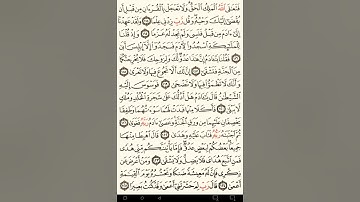 فَتَعَـٰلَى ٱللَّهُ ٱلْمَلِكُ ٱلْحَقُّ وَلَا تَعْجَلْ بِٱلْقُرْءَانِ مِن قَبْلِ أَن
يُقْضَىٰٓ إِلَيْكَ وَحْيُهُۥ وَقُل رَّبِّ زِدْنِى عِلْمًا ١١٤ وَلَقَدْ عَهِدْنَآ
إِلَىٰٓ ءَادَمَ مِن قَبْلُ فَنَسِىَ وَلَمْ نَجِدْ لَهُۥ عَزْمًا ١١٥ وَإِذْ قُلْنَا
لِلْمَلَـٰٓئِكَةِ ٱسْجُدُوا۟ لِـَٔادَمَ فَسَجَدُوٓا۟ إِلَّآ إِبْلِيسَ أَبَىٰ
١١٦ فَقُلْنَا يَـٰٓـَٔادَمُ إِنَّ هَـٰذَا عَدُوٌّ لَّكَ وَلِزَوْجِكَ فَلَا يُخْرِجَنَّكُمَا
مِنَ ٱلْجَنَّةِ فَتَشْقَىٰٓ ١١٧ إِنَّ لَكَ أَلَّا تَجُوعَ فِيهَا وَلَا تَعْرَىٰ
١١٨ وَأَنَّكَ لَا تَظْمَؤُا۟ فِيهَا وَلَا تَضْحَىٰ ١١٩ فَوَسْوَسَ إِلَيْهِ
ٱلشَّيْطَـٰنُ قَالَ يَـٰٓـَٔادَمُ هَلْ أَدُلُّكَ عَلَىٰ شَجَرَةِ ٱلْخُلْدِ وَمُلْكٍ
لَّا يَبْلَىٰ ١٢٠ فَأَكَلَا مِنْهَا فَبَدَتْ لَهُمَا سَوْءَٰتُهُمَا وَطَفِقَا
يَخْصِفَانِ عَلَيْهِمَا مِن وَرَقِ ٱلْجَنَّةِ وَعَصَىٰٓ ءَادَمُ رَبَّهُۥ فَغَوَىٰ
١٢١ ثُمَّ ٱجْتَبَـٰهُ رَبُّهُۥ فَتَابَ عَلَيْهِ وَهَدَىٰ ١٢٢ قَالَ ٱهْبِطَا مِنْهَا
جَمِيعًۢا بَعْضُكُمْ لِبَعْضٍ عَدُوٌّ فَإِمَّا يَأْتِيَنَّكُم مِّنِّى هُدًى
فَمَنِ ٱتَّبَعَ هُدَاىَ فَلَا يَضِلُّ وَلَا يَشْقَىٰ ١٢٣ وَمَنْ أَعْرَضَ عَن
ذِكْرِى فَإِنَّ لَهُۥ مَعِيشَةً ضَنكًا وَنَحْشُرُهُۥ يَوْمَ ٱلْقِيَـٰمَةِ
أَعْمَىٰ ١٢٤ قَالَ رَبِّ لِمَ حَشَرْتَنِىٓ أَعْمَىٰ وَقَدْ كُنتُ بَصِيرًا ١٢٥